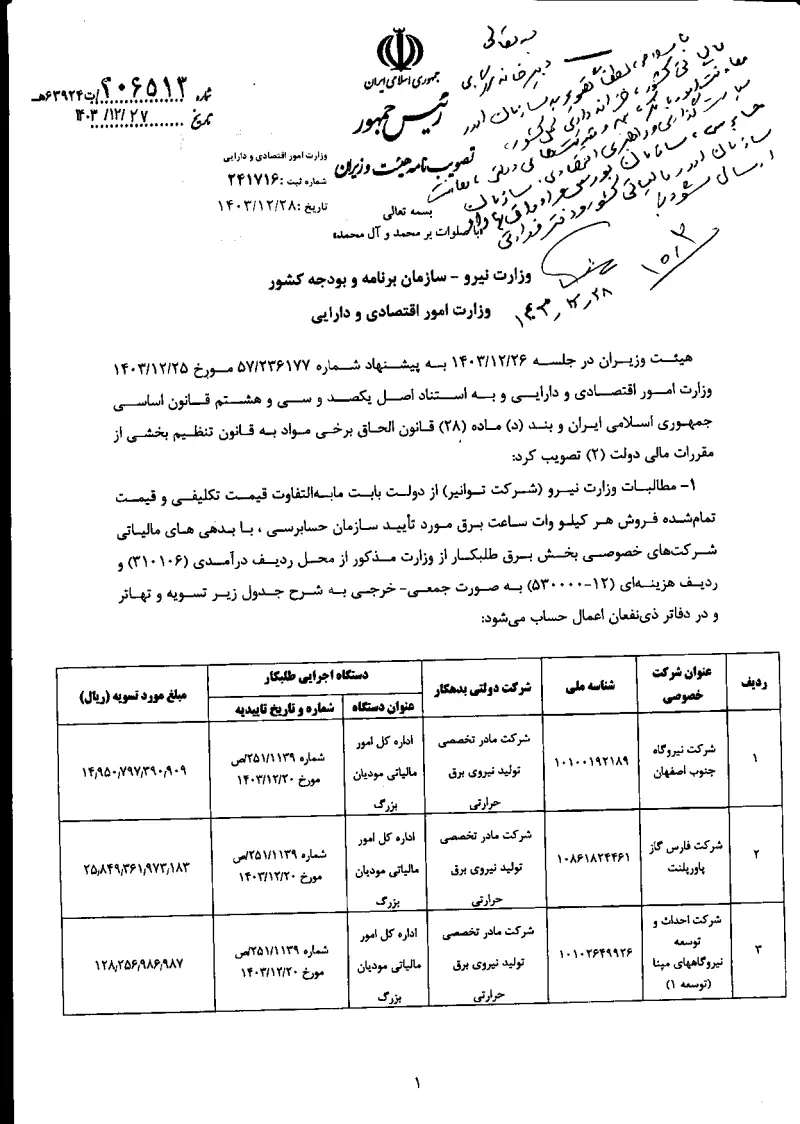 جمهوری اسلامی ایران
رئیس جمهور
تصویب‌نامه هیئت وزیران
شماره ۲۰۶۵۱۳/ت۶۳۹۲۴هـ
تاریخ ۱۴۰۳/۱۲/۲۷
وزارت امور اقتصادی و دارایی
شماره ثبت : ۲۴۱۷۱۶
تاریخ : ۱۴۰۳/۱۲/۲۸
به تعالی
دبیرخانه
بسمه تعالی
با صلوات بر محمد و آل محمد
۱۴۰۳/۱۲/۲۸
وزارت نیرو – سازمان برنامه و بودجه کشور
وزارت امور اقتصادی و دارایی
هیئت وزیران در جلسه ۱۴۰۳/۱۲/۲۶ به پیشنهاد شماره ۵۷/۲۳۶۱۷۷ مورخ ۱۴۰۳/۱۲/۲۵
وزارت امور اقتصادی و دارایی و به استناد اصل یکصد و سی و هشتم قانون اساسی
جمهوری اسلامی ایران و بند (د) ماده (۲۸) قانون الحاق برخی مواد به قانون تنظیم بخشی از
مقررات مالی دولت (۲) تصویب کرد:
۱- مطالبات وزارت نیرو (شرکت توانیر) از دولت بابت مابه‌التفاوت قیمت تکلیفی و قیمت
تمام‌شده فروش هر کیلو وات ساعت برق مورد تأیید سازمان حسابرسی ، با بدهی های مالیاتی
شرکت‌های خصوصی بخش برق طلبکار از وزارت مذکور از محل ردیف درآمدی (۳۱۰۱۰۶) و
ردیف هزینه‌ای (۱۲-۵۳۰۰۰۰) به صورت جمعی- خرجی به شرح جدول زیر تسویه و تهاتر
و در دفاتر ذی‌نفعان اعمال حساب می‌شود:
ردیف
عنوان شرکت
خصوصی
شناسه ملی
شرکت دولتی بدهکار
دستگاه اجرایی طلبکار
عنوان دستگاه
شماره و تاریخ تاییدیه
مبلغ مورد تسویه (ریال)
۱
شرکت نیروگاه
جنوب اصفهان
۱۰۱۰۰۱۹۲۱۸۹
شرکت مادر تخصصی
تولید نیروی برق
حرارتی
اداره کل امور
مالیاتی مودیان
بزرگ
شماره ۲۵۱/۱۱۳۹/ص
مورخ ۱۴۰۳/۱۲/۲۰
۱۴,۹۵۰,۷۹۷,۳۹۰,۹۰۹
۲
شرکت فارس گاز
پاورپلنت
۱۰۸۶۱۸۲۴۴۶۱
شرکت مادر تخصصی
تولید نیروی برق
حرارتی
اداره کل امور
مالیاتی مودیان
بزرگ
شماره ۲۵۱/۱۱۳۹/ص
مورخ ۱۴۰۳/۱۲/۲۰
۲۵,۸۴۹,۳۶۱,۹۷۳,۱۸۳
۳
شرکت احداث و
توسعه
نیروگاههای مپنا
(توسعه ۱)
۱۰۱۰۲۶۴۹۹۲۶
شرکت مادر تخصصی
تولید نیروی برق
حرارتی
اداره کل امور
مالیاتی مودیان
بزرگ
شماره ۲۵۱/۱۱۳۹/ص
مورخ ۱۴۰۳/۱۲/۲۰
۱۲۸,۲۵۶,۹۸۶,۹۸۷
۱